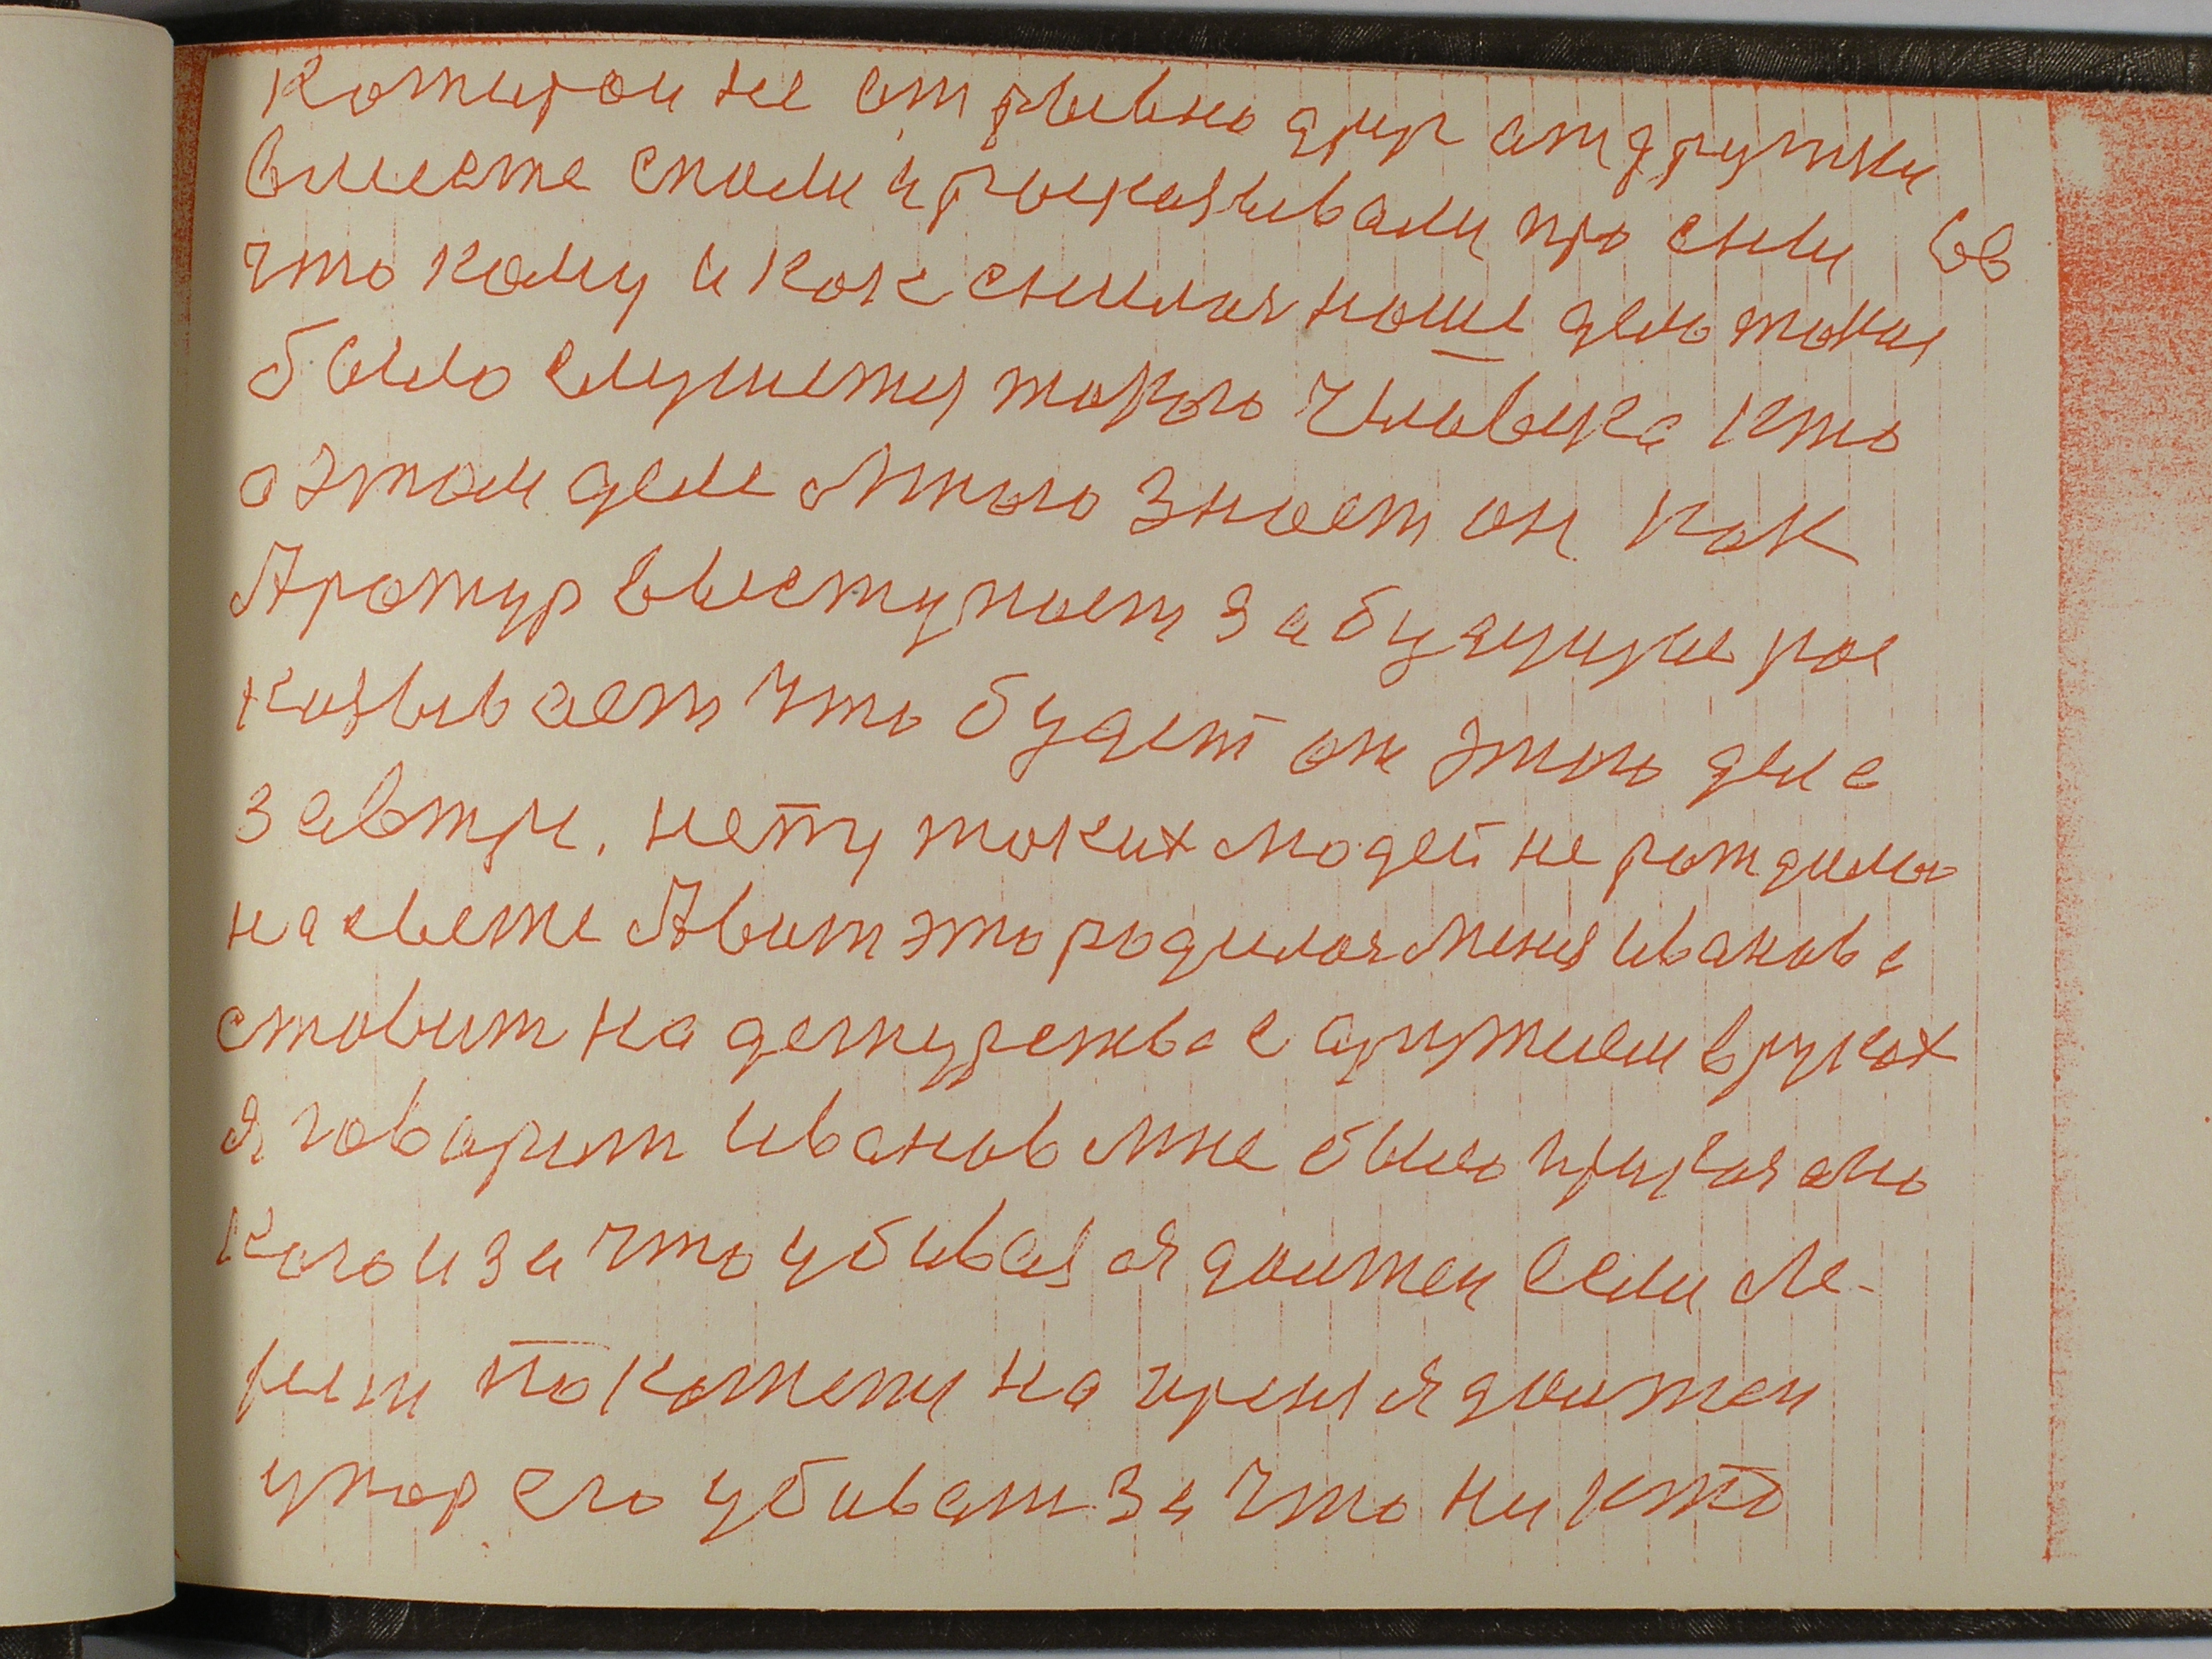 которои не отрывно друг от дружки
вместе спали и росказывали про сны 66
что кому и как снилоя наше дело такое
было слушеты такого человека кто
о этом деле много знает он как
Аратур выступает за будущее рос
казывает что будет от этого дела
завтри. нету таких людей не рождилос
на свете А вит это родилоя меня Иванов с
ставит на дежурства с аружием в руках
я говорит Иванов мне было приказано
кого и за что убиваты я должен если ме-
покажеты на время я должен
упор его убиват за что ни кто